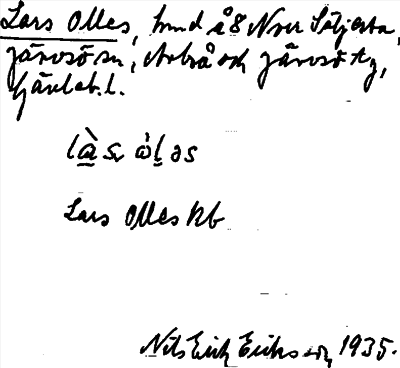 Lars Olles, hmd å 8 Norr Söljesta,
Järvsö sn, Arbrå och Järvsö tg,
Gävleb. l.
Lars Olles hb
Nils Erik Eriksson, 1935.